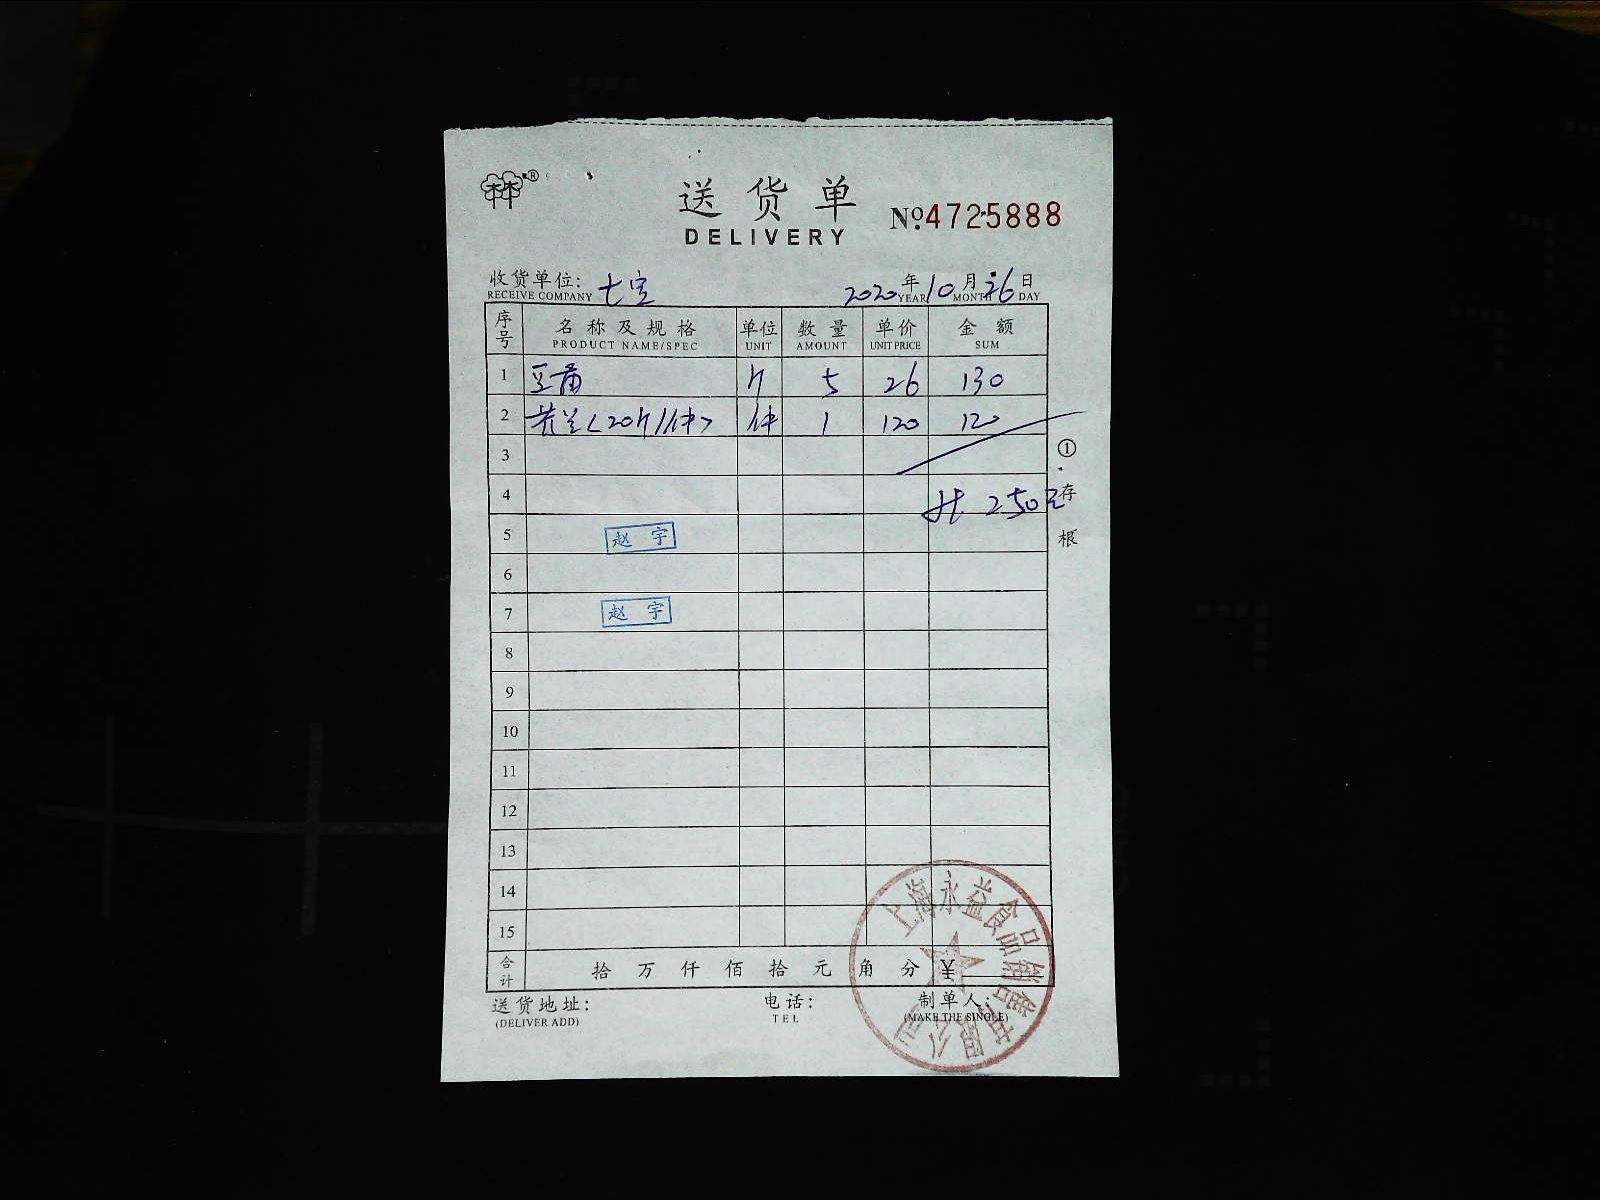 ®
送货单
DELIVERY
Nº.4725888
收货单位: 七宝 2020年10月26日
RECEIVE COMPANY YEAR MONTH DAY
序号 名称及规格 单位 数量 单价 金额
PRODUCT NAME/SPEC UNIT AMOUNT UNIT PRICE SUM
1 豆苗 斤 5 26 130
2 芥兰<20斤/件> 件 1 120 120
3
4 共 250元
5 赵宇
6
7 赵宇
8
9
10
11
12
13
14
15
合计 拾万仟佰拾元角分 ¥
①存根
送货地址: 电话: 制单人:
(DELIVER ADD) TEL (MAKE THE SINGLE)
上海永益食品销售有限公司